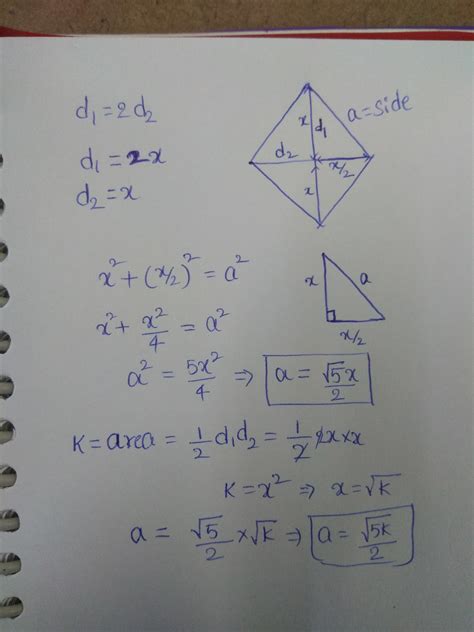 d₁ = 2d₂
d₁ = 2x
d₂ = x
x d₁ a = side
d₂ x/2
x
x² + (x/2)² = a²
x a
x/2
x² + x²/4 = a²
a² = 5x²/4 ⇒ a = √5x/2
K = area = 1/2 d₁d₂ = 1/2 2x × x
K = x² ⇒ x = √K
a = √5/2 × √K ⇒ a = √5K/2